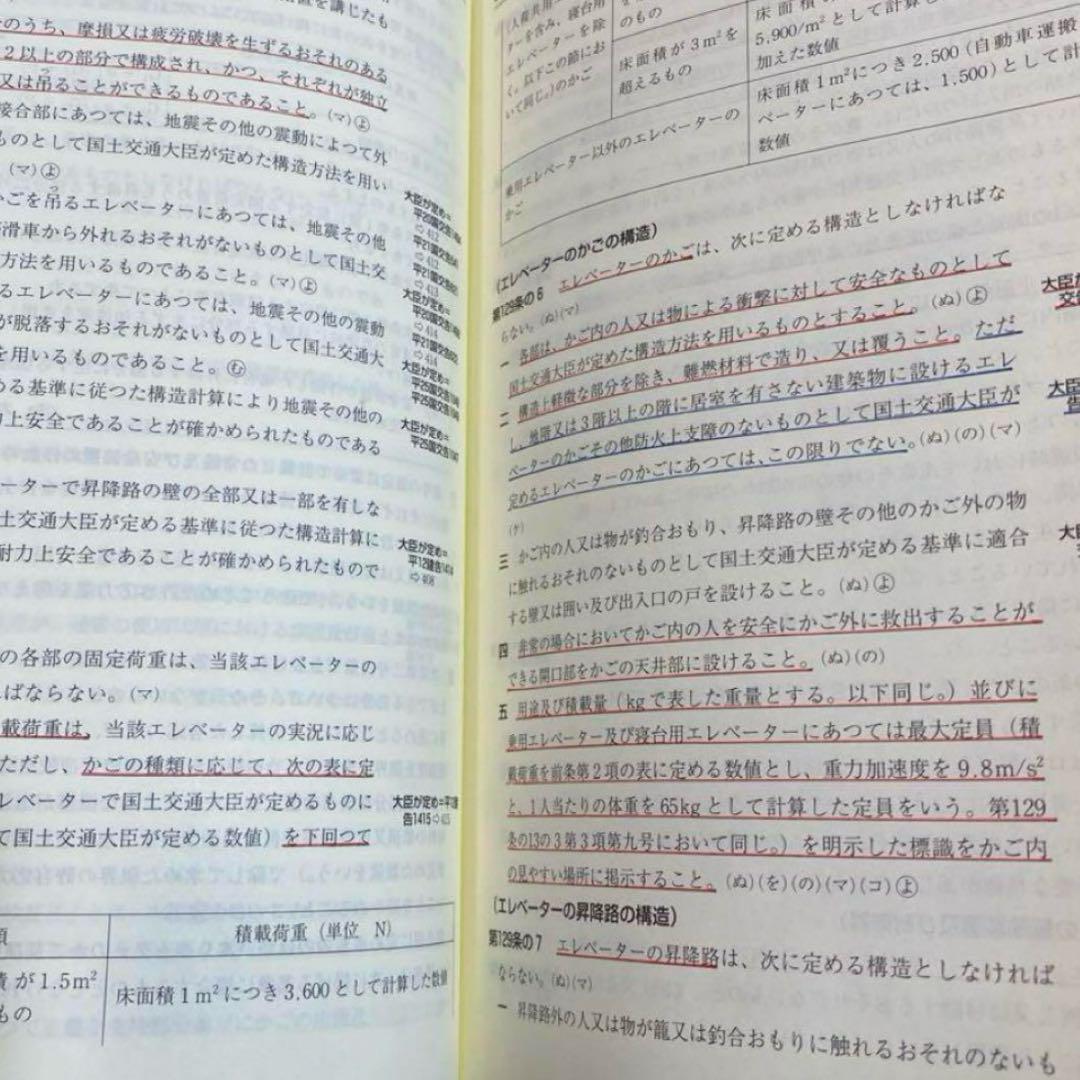 置を講じたも
のうち、摩損又は疲労破壊を生ずるおそれのある
2以上の部分で構成され、かつ、それぞれが独立
又は吊ることができるものであること。(マ)㋵
接合部にあつては、地震その他の震動によつて外
ものとして国土交通大臣が定めた構造方法を用い
。(マ)㋵
かごを吊るエレベーターにあつては、地震その他
滑車から外れるおそれがないものとして国土交
方法を用いるものであること。(マ)㋵
るエレベーターにあつては、地震その他の震動
が脱落するおそれがないものとして国土交通大
を用いるものであること。㋰
める基準に従つた構造計算により地震その他の
力上安全であることが確かめられたものである
ーターで昇降路の壁の全部又は一部を有しな
土交通大臣が定める基準に従つた構造計算に
耐力上安全であることが確かめられたもので
の各部の固定荷重は、当該エレベーターの
ばならない。(マ)
載荷重は、当該エレベーターの実況に応じ
ただし、かごの種類に応じて、次の表に定
レベーターで国土交通大臣が定めるものに
て国土交通大臣が定める数値)を下回つて
大臣が定め=
⇨412
大臣が定め=
⇨414
大臣が定め=
大臣が定め=
大臣が定め=
平12建告1414
⇨408
大臣が定め=平12建
告1415⇨405
積載荷重(単位 N)
積が1.5m²
もの
床面積1m²につき3,600として計算した数値
ターを含み、寝台用
エレベーターを除
く。以下この節にお
いて同じ。)のかご
のもの
5,900/m²として計算し
加えた数値
床面積が3m²を
超えるもの
乗用エレベーター以外のエレベーターの
かご
床面積1m²につき2,500(自動車運搬
ベーターにあつては、1,500)として計
数値
(エレベーターのかごの構造)
第129条の6 エレベーターのかごは、次に定める構造としなければな
らない。(ぬ)(マ)
一 各部は、かご内の人又は物による衝撃に対して安全なものとして
国土交通大臣が定めた構造方法を用いるものとすること。(ぬ)㋵
大臣が
二 構造上軽微な部分を除き、難燃材料で造り、又は覆うこと。ただ
し、地階又は3階以上の階に居室を有さない建築物に設けるエレ
ベーターのかごその他防火上支障のないものとして国土交通大臣が
定めるエレベーターのかごにあつては、この限りでない。(ぬ)(の)(マ)
(ケ)
大臣が
三 かご内の人又は物が釣合おもり、昇降路の壁その他のかご外の物
に触れるおそれのないものとして国土交通大臣が定める基準に適合
する壁又は囲い及び出入口の戸を設けること。(ぬ)㋵
四 非常の場合においてかご内の人を安全にかご外に救出することが
できる開口部をかごの天井部に設けること。(ぬ)(の)
五 用途及び積載量(kgで表した重量とする。以下同じ。)並びに
乗用エレベーター及び寝台用エレベーターにあつては最大定員(積
載荷重を前条第2項の表に定める数値とし、重力加速度を9.8m/s²
と、1人当たりの体重を65kgとして計算した定員をいう。第129
条の13の3第3項第九号において同じ。)を明示した標識をかご内
の見やすい場所に掲示すること。(ぬ)(を)(の)(マ)(コ)㋵
(エレベーターの昇降路の構造)
第129条の7 エレベーターの昇降路は、次に定める構造としなければ
ならない。(ぬ)(マ)
一 昇降路外の人又は物が籠又は釣合おもりに触れるおそれのないも